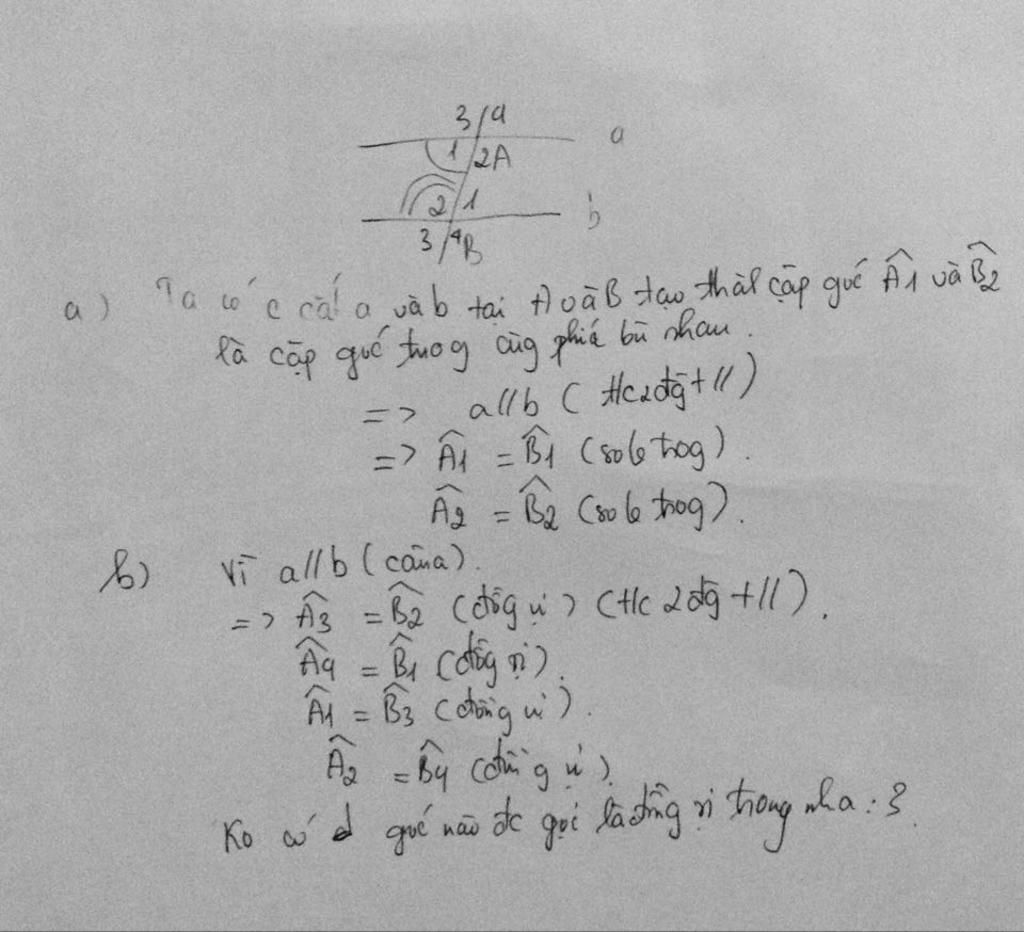 3 4 a
1 2A
2 1 b
3 4B
a) Ta có c cắt a và b tại A và B tạo thàh cặp góc Â1 và B̂2
là cặp góc trog cùg phía bù nhau.
=> a//b ( t/c 2đḡ t //)
=> Â1 = B̂1 (so le trog).
Â2 = B̂2 (so le trog).
b) Vì a//b (câu a).
=> Â3 = B̂2 (đồg vị) (t/c 2đḡ t //).
Â4 = B̂1 (đồg vị).
Â1 = B̂3 (đồng vị).
Â2 = B̂4 (đồng vị).
Ko có góc nào đc gọi là đồng vị trong nha :3.